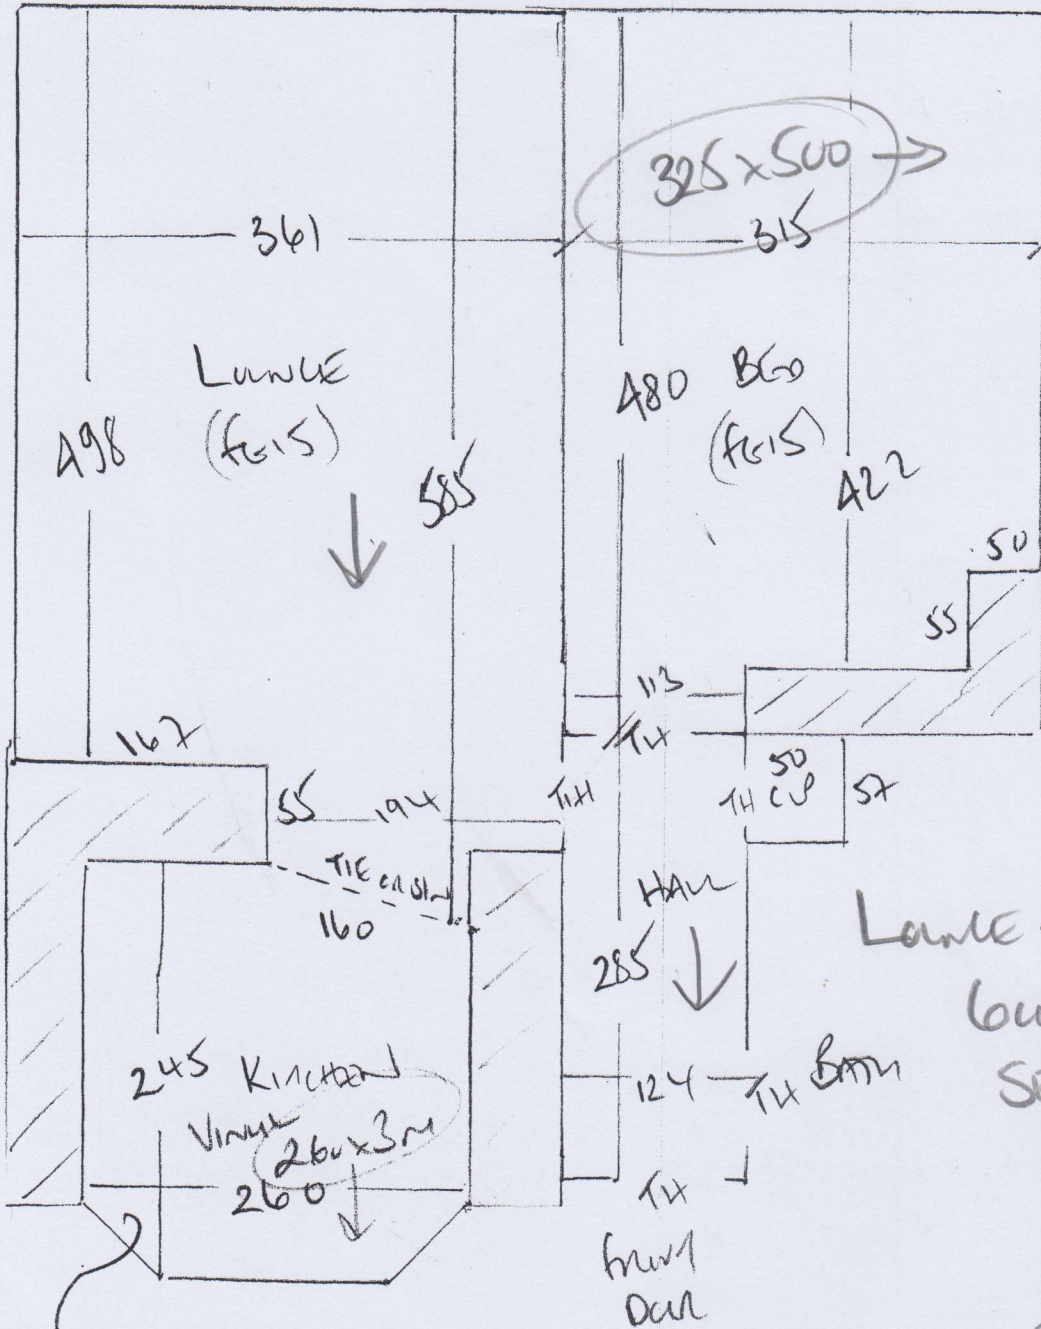 325 x 500
361
315
LOUNGE
(FG15)
498
585
480
BED
(FG15)
422
50
55
113
TH
167
55
194
TH
TH
50
CUP
57
160
HALL
285
LOUNGE
245
KITCHEN
VINYL
260 x 3M
260
124
TH
BATH
TH
FRONT
DOOR